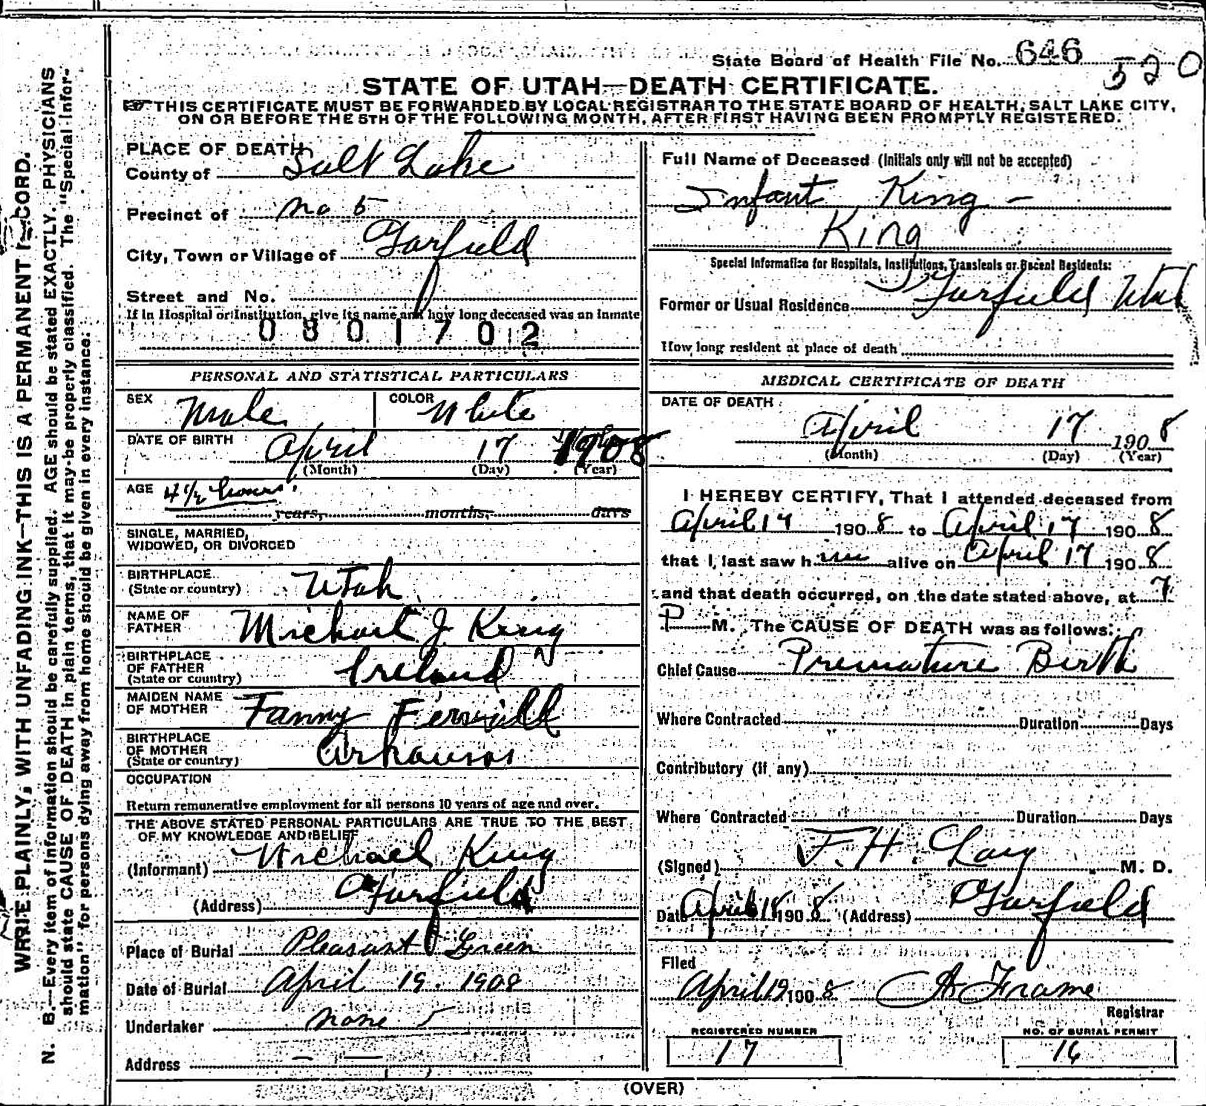 State Board of Health File No. 646 520
STATE OF UTAH—DEATH CERTIFICATE.
THIS CERTIFICATE MUST BE FORWARDED BY LOCAL REGISTRAR TO THE STATE BOARD OF HEALTH, SALT LAKE CITY,
ON OR BEFORE THE 5TH OF THE FOLLOWING MONTH, AFTER FIRST HAVING BEEN PROMPTLY REGISTERED.
WRITE PLAINLY, WITH UNFADING INK—THIS IS A PERMANENT RECORD.
N. B.—Every item of information should be carefully supplied. AGE should be stated EXACTLY. PHYSICIANS
should state CAUSE OF DEATH in plain terms, that it may be properly classified. The "Special Infor-
mation" for persons dying away from home should be given in every instance.
PLACE OF DEATH
County of Salt Lake
Precinct of No 5
City, Town or Village of Garfield
Street and No.
If in Hospital or Institution, give its name and how long deceased was an inmate
0801702
PERSONAL AND STATISTICAL PARTICULARS
SEX Male COLOR White
DATE OF BIRTH April 17 1908
(Month) (Day) (Year)
AGE 4 1/2 hours.
years, months, days
SINGLE, MARRIED,
WIDOWED, OR DIVORCED
BIRTHPLACE
(State or country) Utah
NAME OF
FATHER Michael J King
BIRTHPLACE
OF FATHER
(State or country) Ireland
MAIDEN NAME
OF MOTHER Fanny
BIRTHPLACE
OF MOTHER
(State or country) Arkansas
OCCUPATION
Return remunerative employment for all persons 10 years of age and over.
THE ABOVE STATED PERSONAL PARTICULARS ARE TRUE TO THE BEST
OF MY KNOWLEDGE AND BELIEF
(Informant) Michael King
(Address) Garfield
Place of Burial Pleasant Green
Date of Burial April 19. 1908
Undertaker none
Address
Full Name of Deceased (Initials only will not be accepted)
Infant King
King
Special Information for Hospitals, Institutions, Transients or Recent Residents:
Former or Usual Residence Garfield Utah
How long resident at place of death
MEDICAL CERTIFICATE OF DEATH
DATE OF DEATH
April 17 1908
(Month) (Day) (Year)
I HEREBY CERTIFY, That I attended deceased from
April 17 1908 to April 17 1908
that I last saw him alive on April 17 1908
and that death occurred, on the date stated above, at 7
P M. The CAUSE OF DEATH was as follows:
Chief Cause Premature Birth
Where Contracted Duration Days
Contributory (if any)
Where Contracted Duration Days
(Signed) F. H. M. D.
Date April 18 1908 (Address) Garfield
Filed
April 19 1908 A Frame
Registrar
REGISTERED NUMBER NO. OF BURIAL PERMIT
17 16
(OVER)